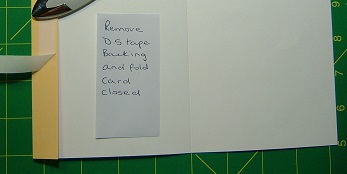 Remove
D.S tape
Backing
and fold
Card
closed
8
7
6
5